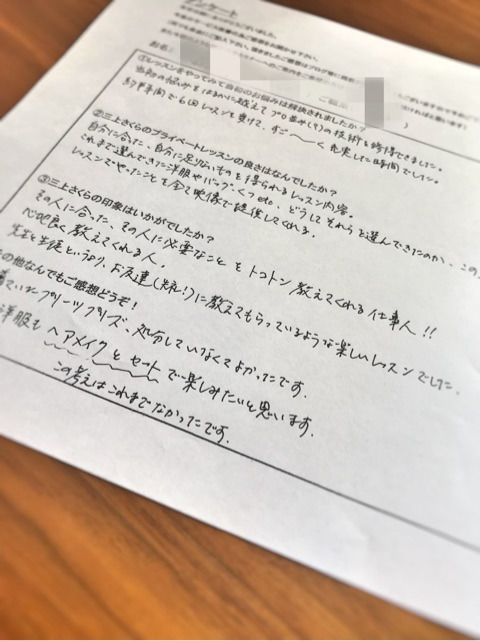 アンケート
お名
①レッスンをやってみて当初のお悩みは解決されましたか？
当初の悩みをはるかに越えてプロ並み(?)の技術を習得できました。
約半年間で6回レッスンを受けて、すご〜く充実した時間でした。
②三上さくらのプライベートレッスンの良さはなんでしたか？
自分に合った、自分に足りないものを得られるレッスン内容。
これまで選んできた洋服やバッグ、くつetc、どうしてそれらを選んできたのか、この
レッスンでやったことを全て映像で総復してくれる。
③三上さくらの印象はいかがでしたか？
その人に合った、その人に必要なことをトコトン教えてくれる仕事人!!
心地良く教えてくれる人。
先生と生徒というより、お友達(失礼!)に教えてもらっているような楽しいレッスンでした。
の他なんでもご感想どうぞ！
着ていたプリーツプリーズ、処分していなくてよかったです。
洋服もヘアメイクとセットで楽しみたいと思います。
この考えはこれまでなかったです。